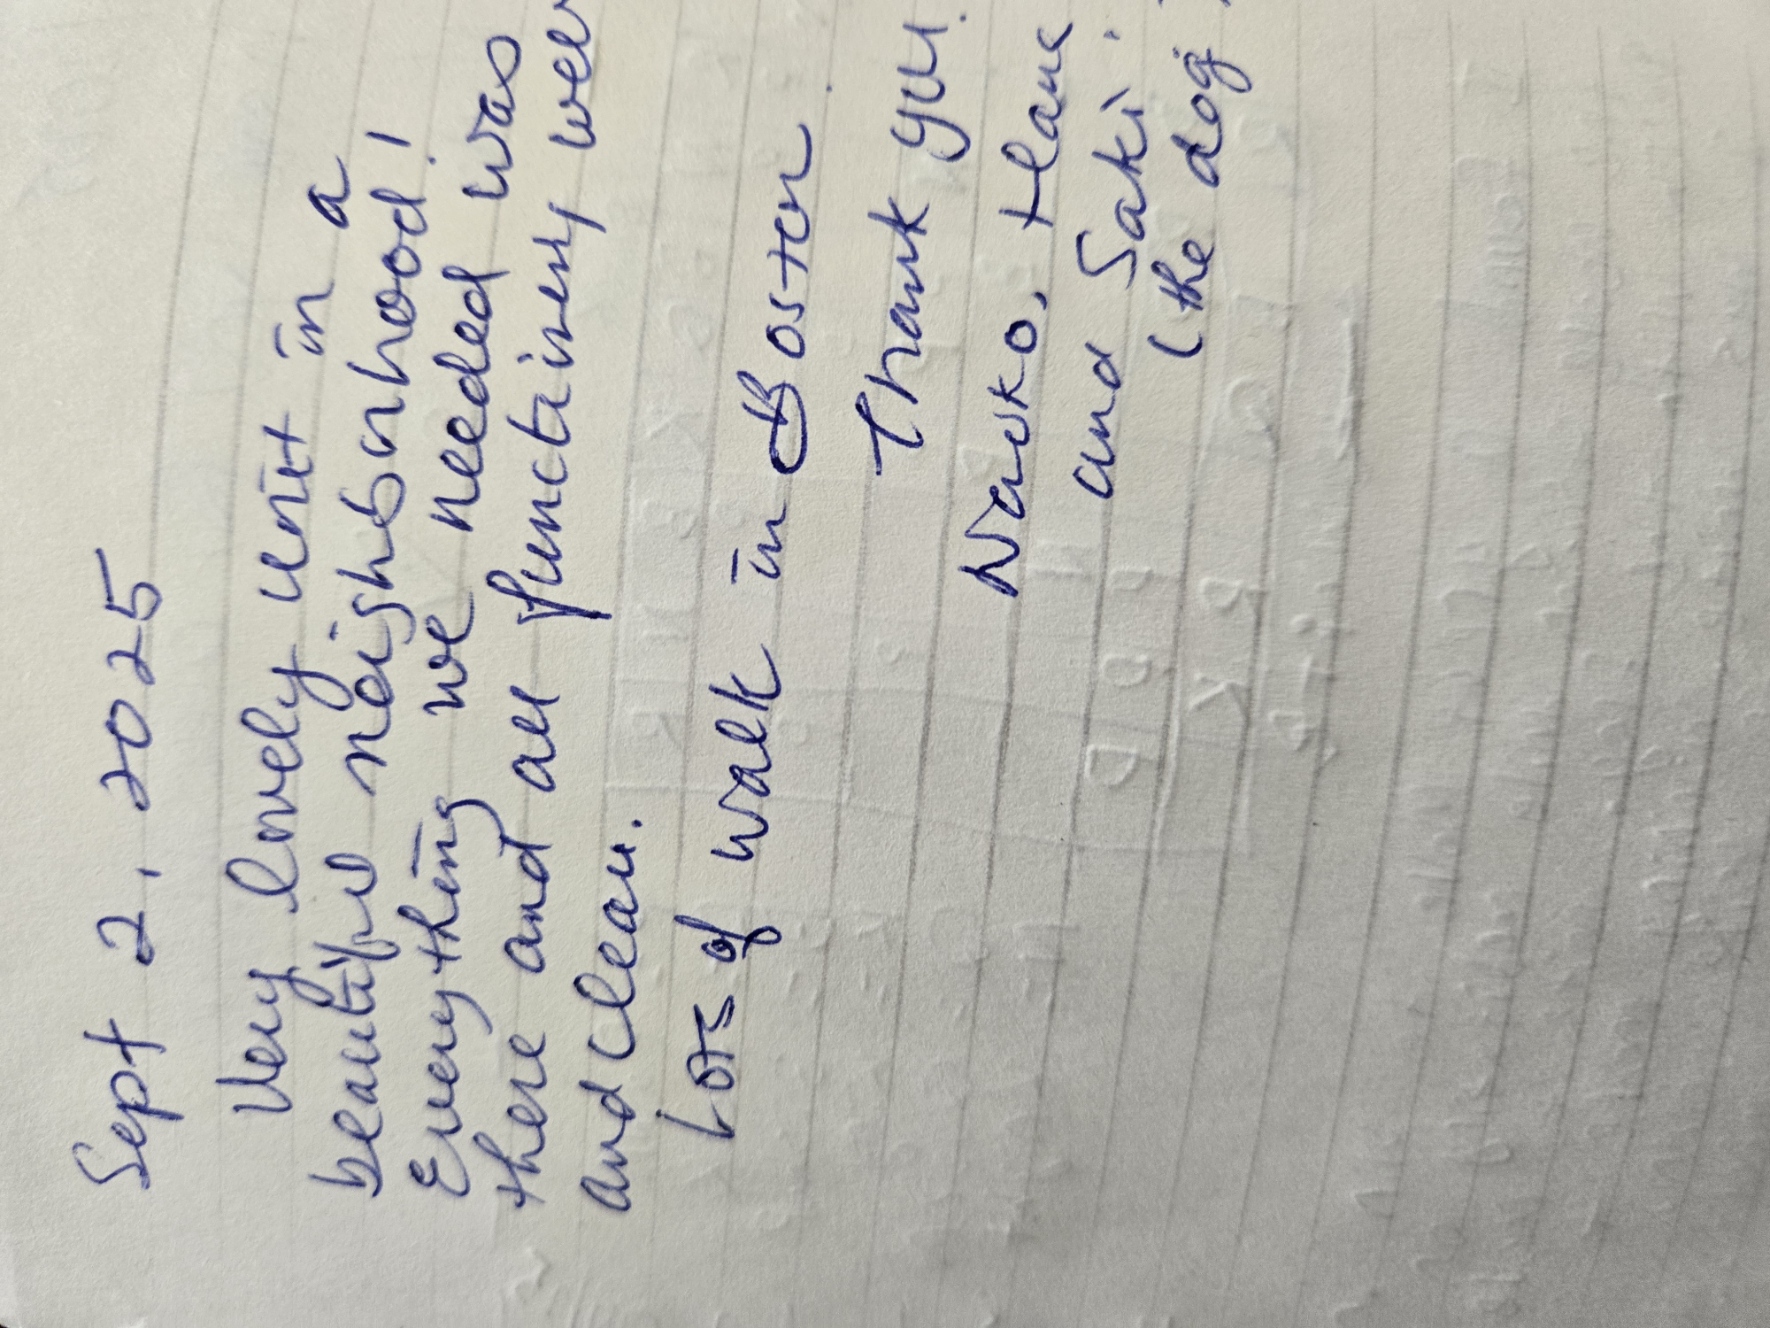 Sept 2, 2025
Very lovely unit in a
beautiful neighborhood!
Everything we needed was
there and all functioning well
and clean.
Lots of walk in Boston.
Thank you.
Naoko, Hans
and Saki.
(the dog)